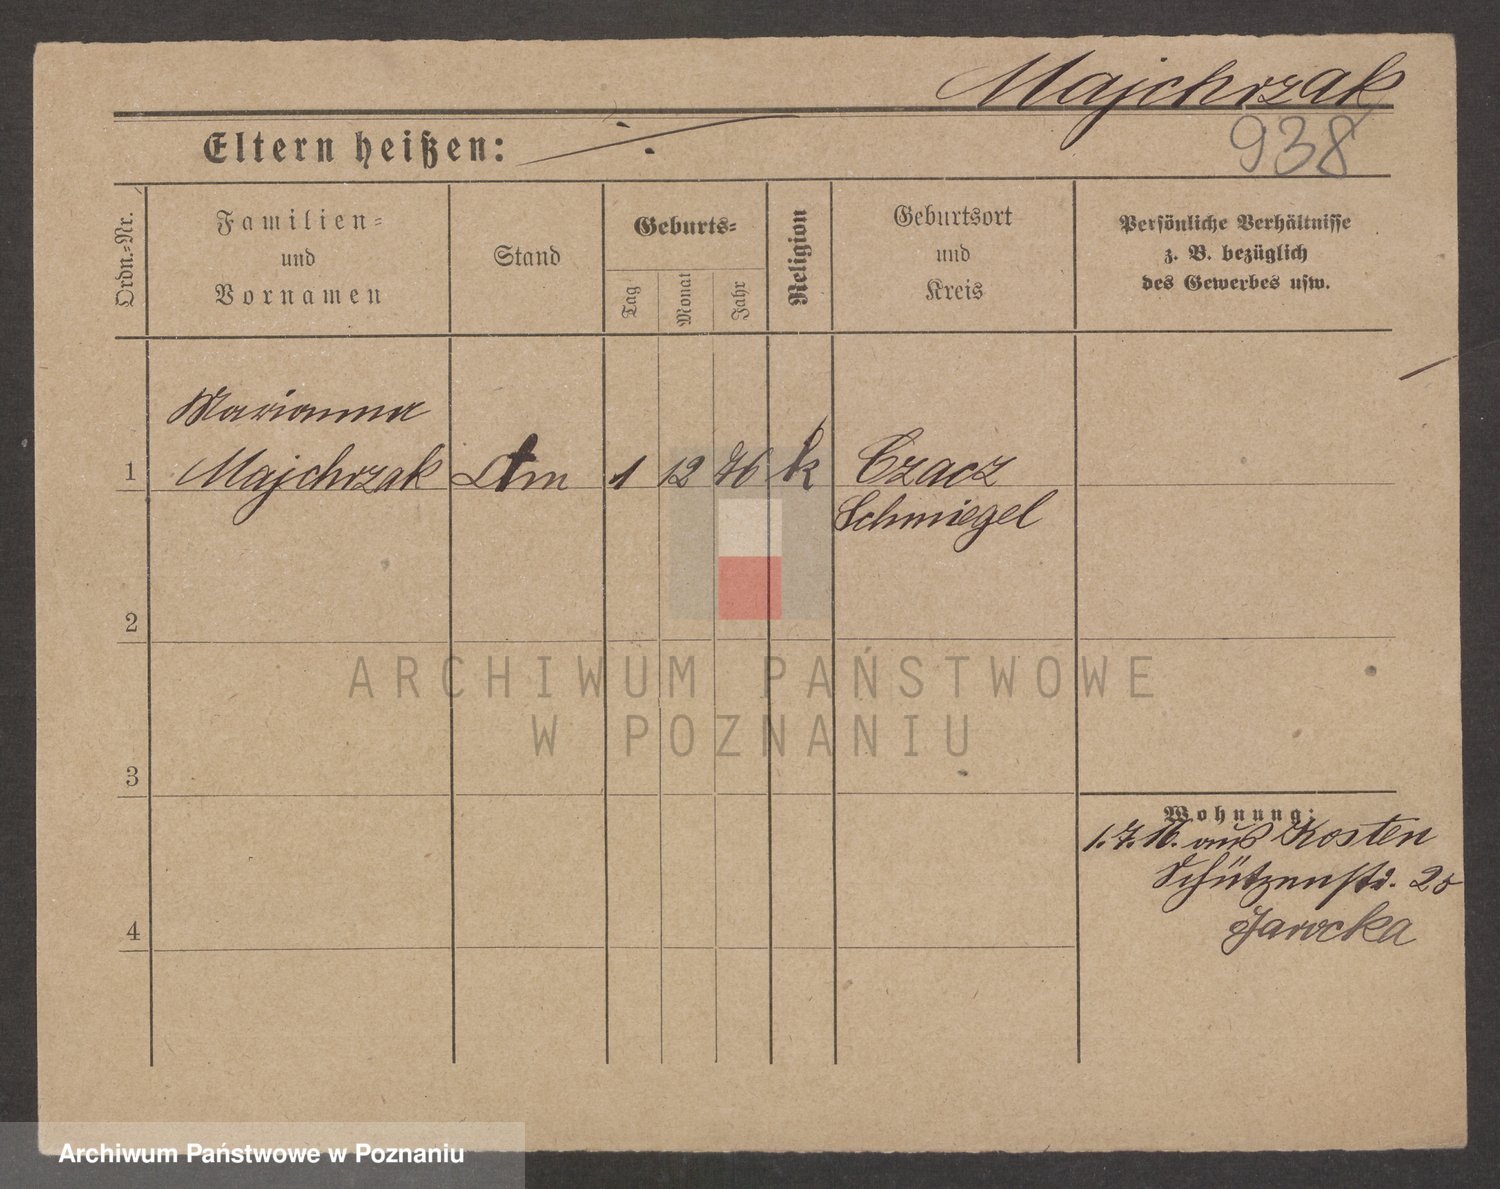 Majchrzak
938
Eltern heißen: ./.
Ordn.-Nr.
Familien-
und
Vornamen
Stand
Geburts-
Tag
Monat
Jahr
Religion
Geburtsort
und
Kreis
Persönliche Verhältnisse
z. B. bezüglich
des Gewerbes usw.
Marianna
1 Majchrzak 1 12 76 k Czacz
Schmiegel
2
3
4
Wohnung:
1.7.16. aus Kosten
Schützenstr. 25
Jarocka
ARCHIWUM PAŃSTWOWE
W POZNANIU
Archiwum Państwowe w Poznaniu